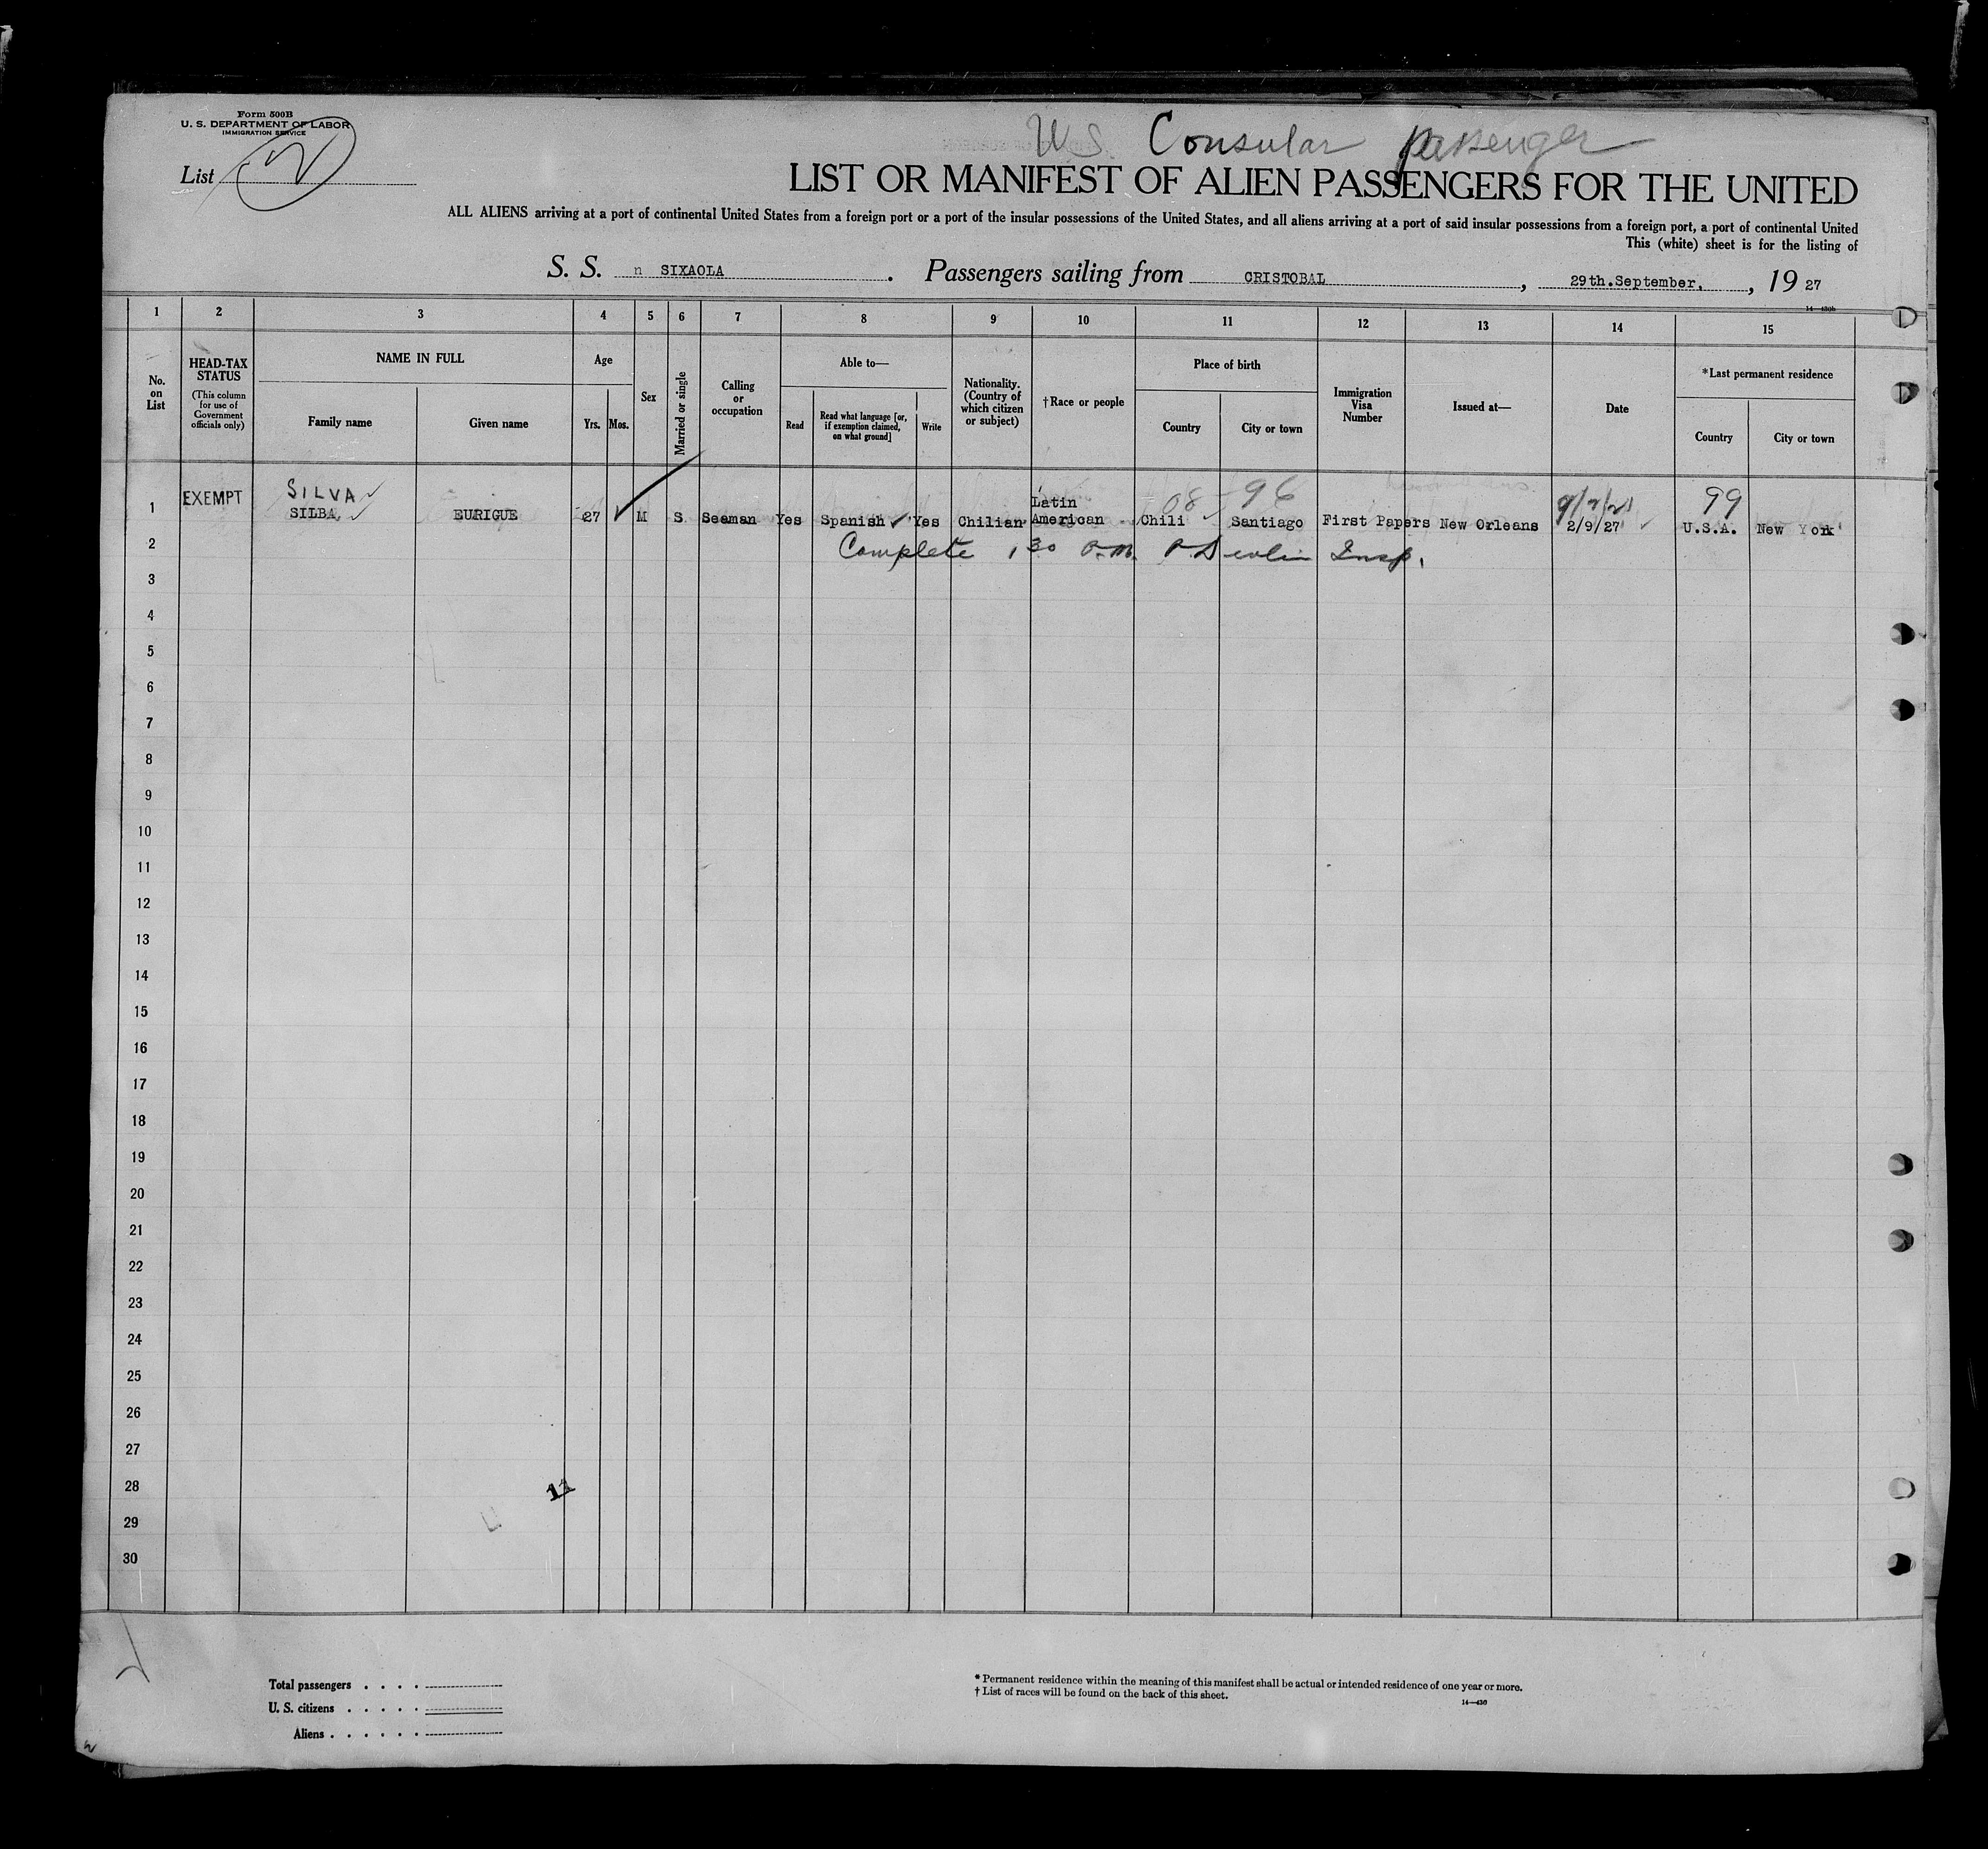 Form 500B
U. S. DEPARTMENT OF LABOR
IMMIGRATION SERVICE
List 2
U.S. Consular passenger
LIST OR MANIFEST OF ALIEN PASSENGERS FOR THE UNITED
ALL ALIENS arriving at a port of continental United States from a foreign port or a port of the insular possessions of the United States, and all aliens arriving at a port of said insular possessions from a foreign port, a port of continental United
This (white) sheet is for the listing of
S. S. n SIXAOLA . Passengers sailing from CRISTOBAL , 29th.September. , 19 27
14—430b
1 2 3 4 5 6 7 8 9 10 11 12 13 14 15
No. on List
HEAD-TAX STATUS
(This column for use of Government officials only)
NAME IN FULL
Family name
Given name
Age
Yrs.
Mos.
Sex
Married or single
Calling or occupation
Able to—
Read
Read what language [or, if exemption claimed, on what ground]
Write
Nationality. (Country of which citizen or subject)
†Race or people
Place of birth
Country
City or town
Immigration Visa Number
Issued at—
Date
*Last permanent residence
Country
City or town
SILVA
08 - 96
99
1 EXEMPT SILBA EURIGUE 27 M S Seaman Yes Spanish Yes Chilian Latin American Chili Santiago First Papers New Orleans 2/9/27 U.S.A. New York
2 Complete 1 30 P.M. Insp.
3
4
5
6
7
8
9
10
11
12
13
14
15
16
17
18
19
20
21
22
23
24
25
26
27
28
11
29
30
Total passengers . . . .
U. S. citizens . . . . .
Aliens . . . . . .
* Permanent residence within the meaning of this manifest shall be actual or intended residence of one year or more.
† List of races will be found on the back of this sheet.
14—430